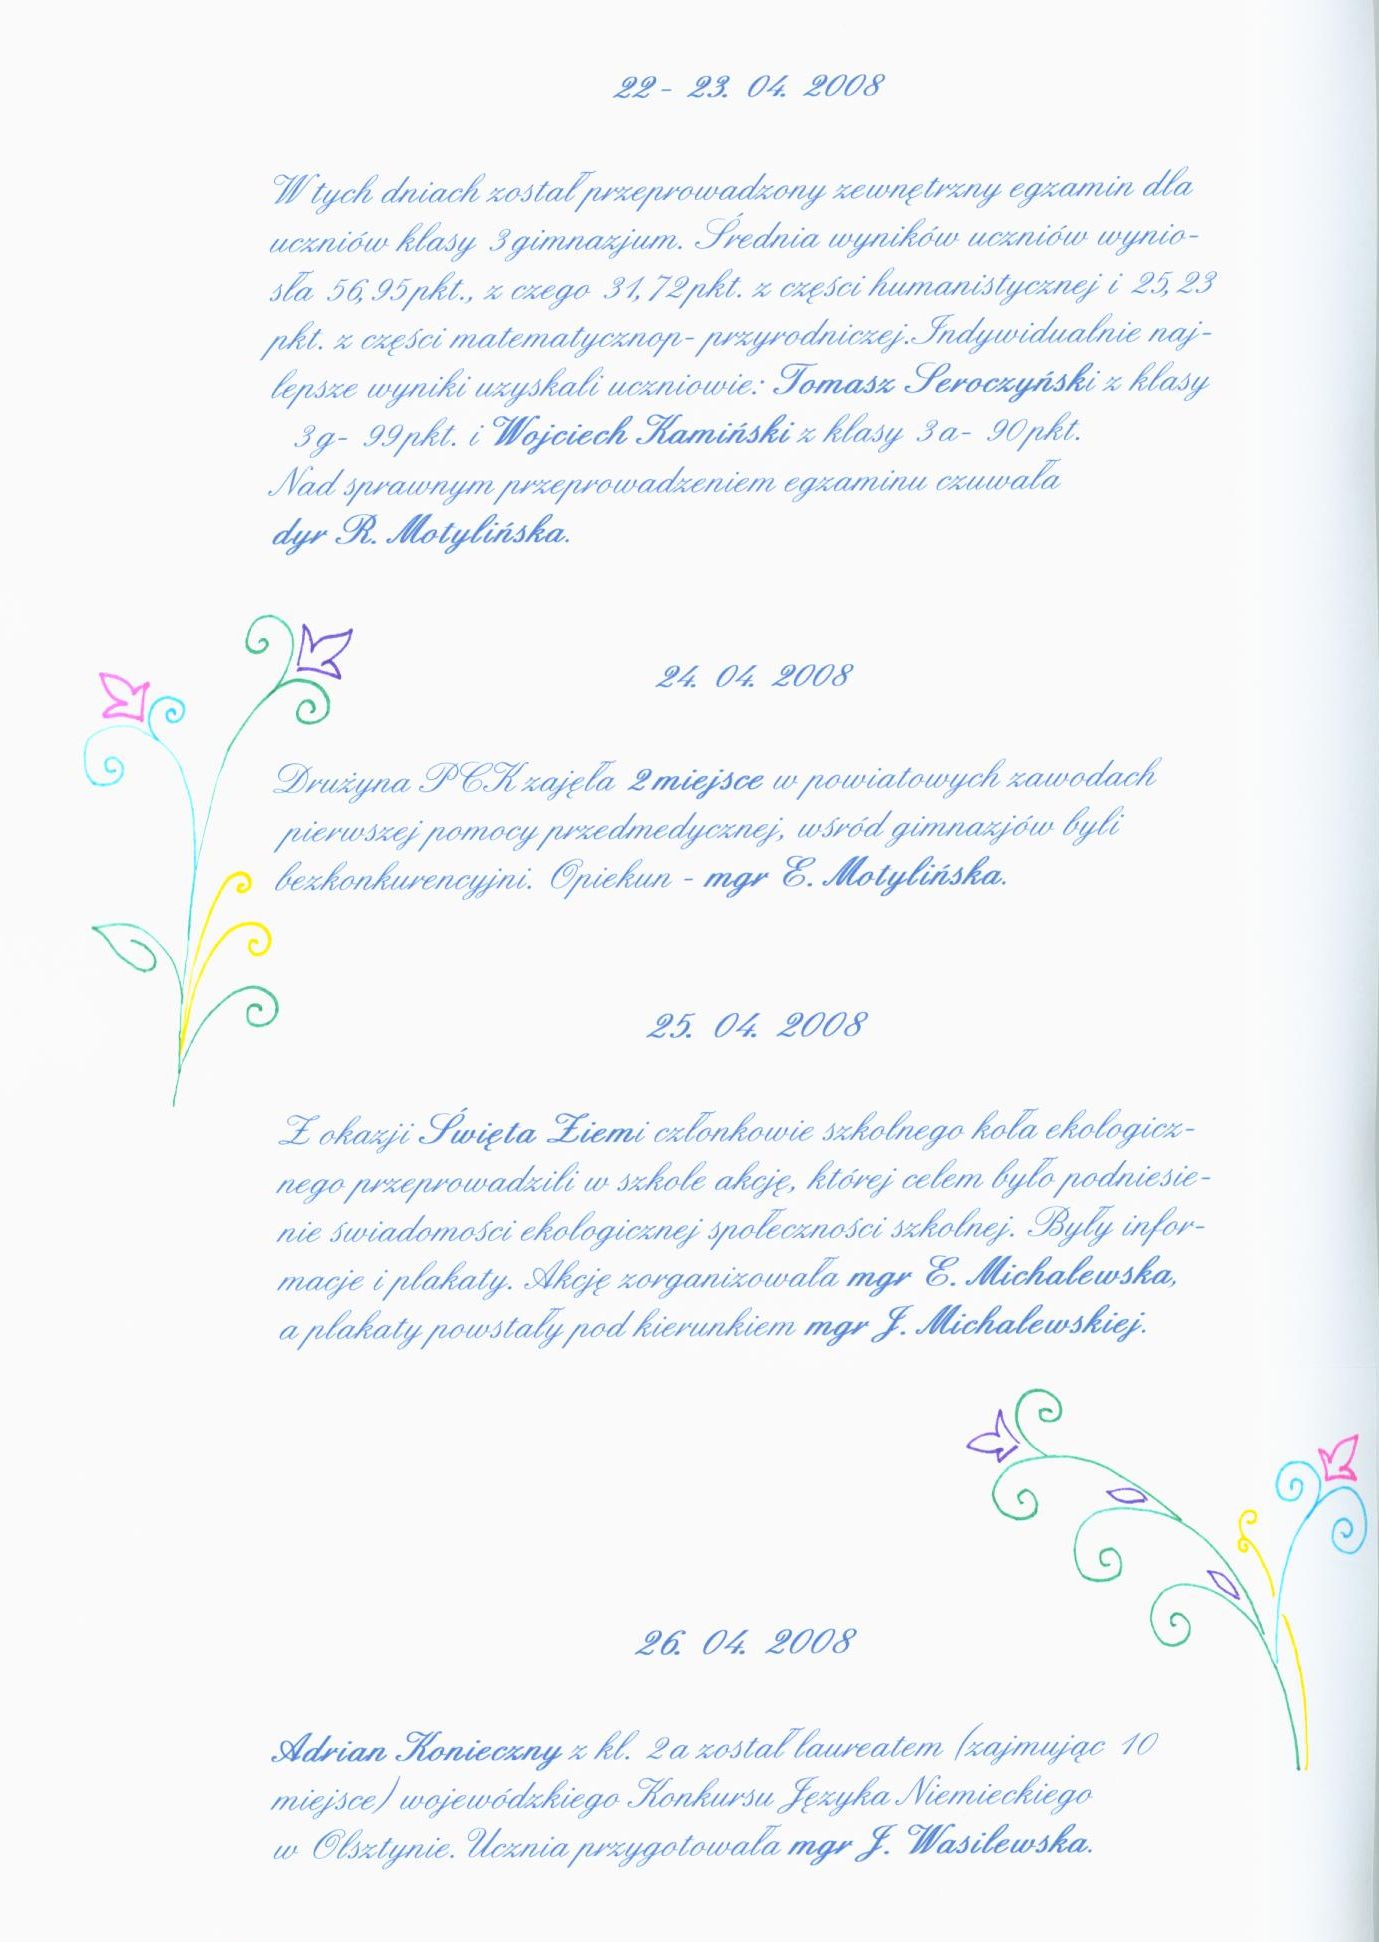 22- 23. 04. 2008
W tych dniach został przeprowadzony zewnętrzny egzamin dla
uczniów klasy 3 gimnazjum. Średnia wyników uczniów wynio-
sła 56,95 pkt., z czego 31,72 pkt. z części humanistycznej i 25,23
pkt. z części matematycznop- przyrodniczej. Indywidualnie naj-
lepsze wyniki uzyskali uczniowie: Tomasz Seroczyński z klasy
3 g- 99 pkt. i Wojciech Kamiński z klasy 3 a- 90 pkt.
Nad sprawnym przeprowadzeniem egzaminu czuwała
dyr R. Motylińska.
24. 04. 2008
Drużyna PCK zajęła 2 miejsce w powiatowych zawodach
pierwszej pomocy przedmedycznej, wśród gimnazjów byli
bezkonkurencyjni. Opiekun - mgr E. Motylińska.
25. 04. 2008
Z okazji Święta Ziemi członkowie szkolnego koła ekologicz-
nego przeprowadzili w szkole akcję, której celem było podniesie-
nie świadomości ekologicznej społeczności szkolnej. Były infor-
macje i plakaty. Akcję zorganizowała mgr E. Michalewska,
a plakaty powstały pod kierunkiem mgr J. Michalewskiej.
26. 04. 2008
Adrian Konieczny z kl. 2 a został laureatem (zajmując 10
miejsce) wojewódzkiego Konkursu Języka Niemieckiego
w Olsztynie. Ucznia przygotowała mgr J. Wasilewska.